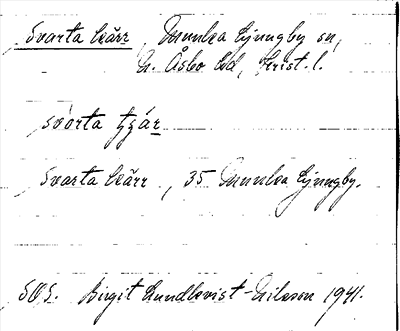 Svarta kärr, Munka Ljungby sn,
N. Åsbo hd, Krist. l.
svòrta tzár
Svarta kärr, 35 Munka Ljungby.
SOS. Birgit Lundkvist-Nilsson 1941.